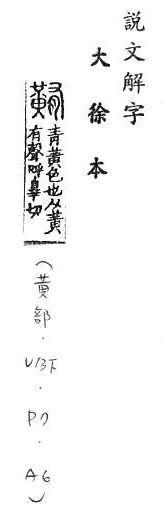 說文解字
大徐本
䵋
青黃色也从黃
有聲呼辠切
（黃部．V13下．P7．A6）